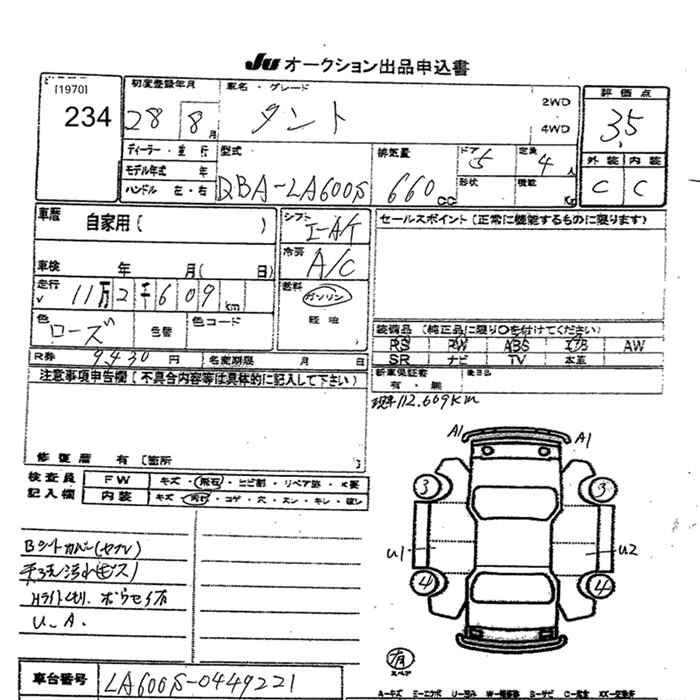 JU オークション出品申込書
[1970]
234
初度登録年月
28 8 月
車名・グレード
タント
2WD
4WD
評価点
3.5
外装 内装
C C
ディーラー・並行
モデル年式 年
ハンドル 左・右
型式
DBA-LA600S
排気量
660 CC
ドア
5
定員
4 人
形状
積載
Kg
車歴 自家用( )
シフト
I-A/T
セールスポイント(正常に機能するものに限ります)
車検 年 月( 日)
冷房
A/C
走行
11万2千609 km
燃料
ガソリン
軽油
色
ローズ
色替
色コード
装備品(純正品に限り○を付けてください)
RS PW ABS エアB AW
SR ナビ TV 本革
R券 9,430 円 名変期限 月 日
新車保証書
有・無
注意事項申告欄(不具合内容等は具体的に記入して下さい)
現車112.609KM
修復歴 有 〔箇所 〕
検査員
記入欄
FW キズ・飛石・ヒビ割・リペア跡・X要
内装 キズ・汚れ・コゲ・穴・スレ・キレ・破レ
A1 A1
3 3
U1 U2
4 4
U.A.
有
スペア
車台番号 LA600S-0449221
A-キズ E-エクボ U-凹み W-補修跡 S-サビ C-腐食 XX-交換済